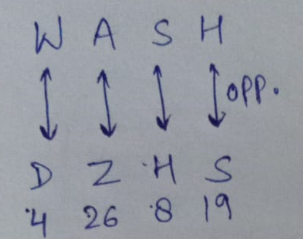 W A S H
opp.
D Z H S
4 26 8 19